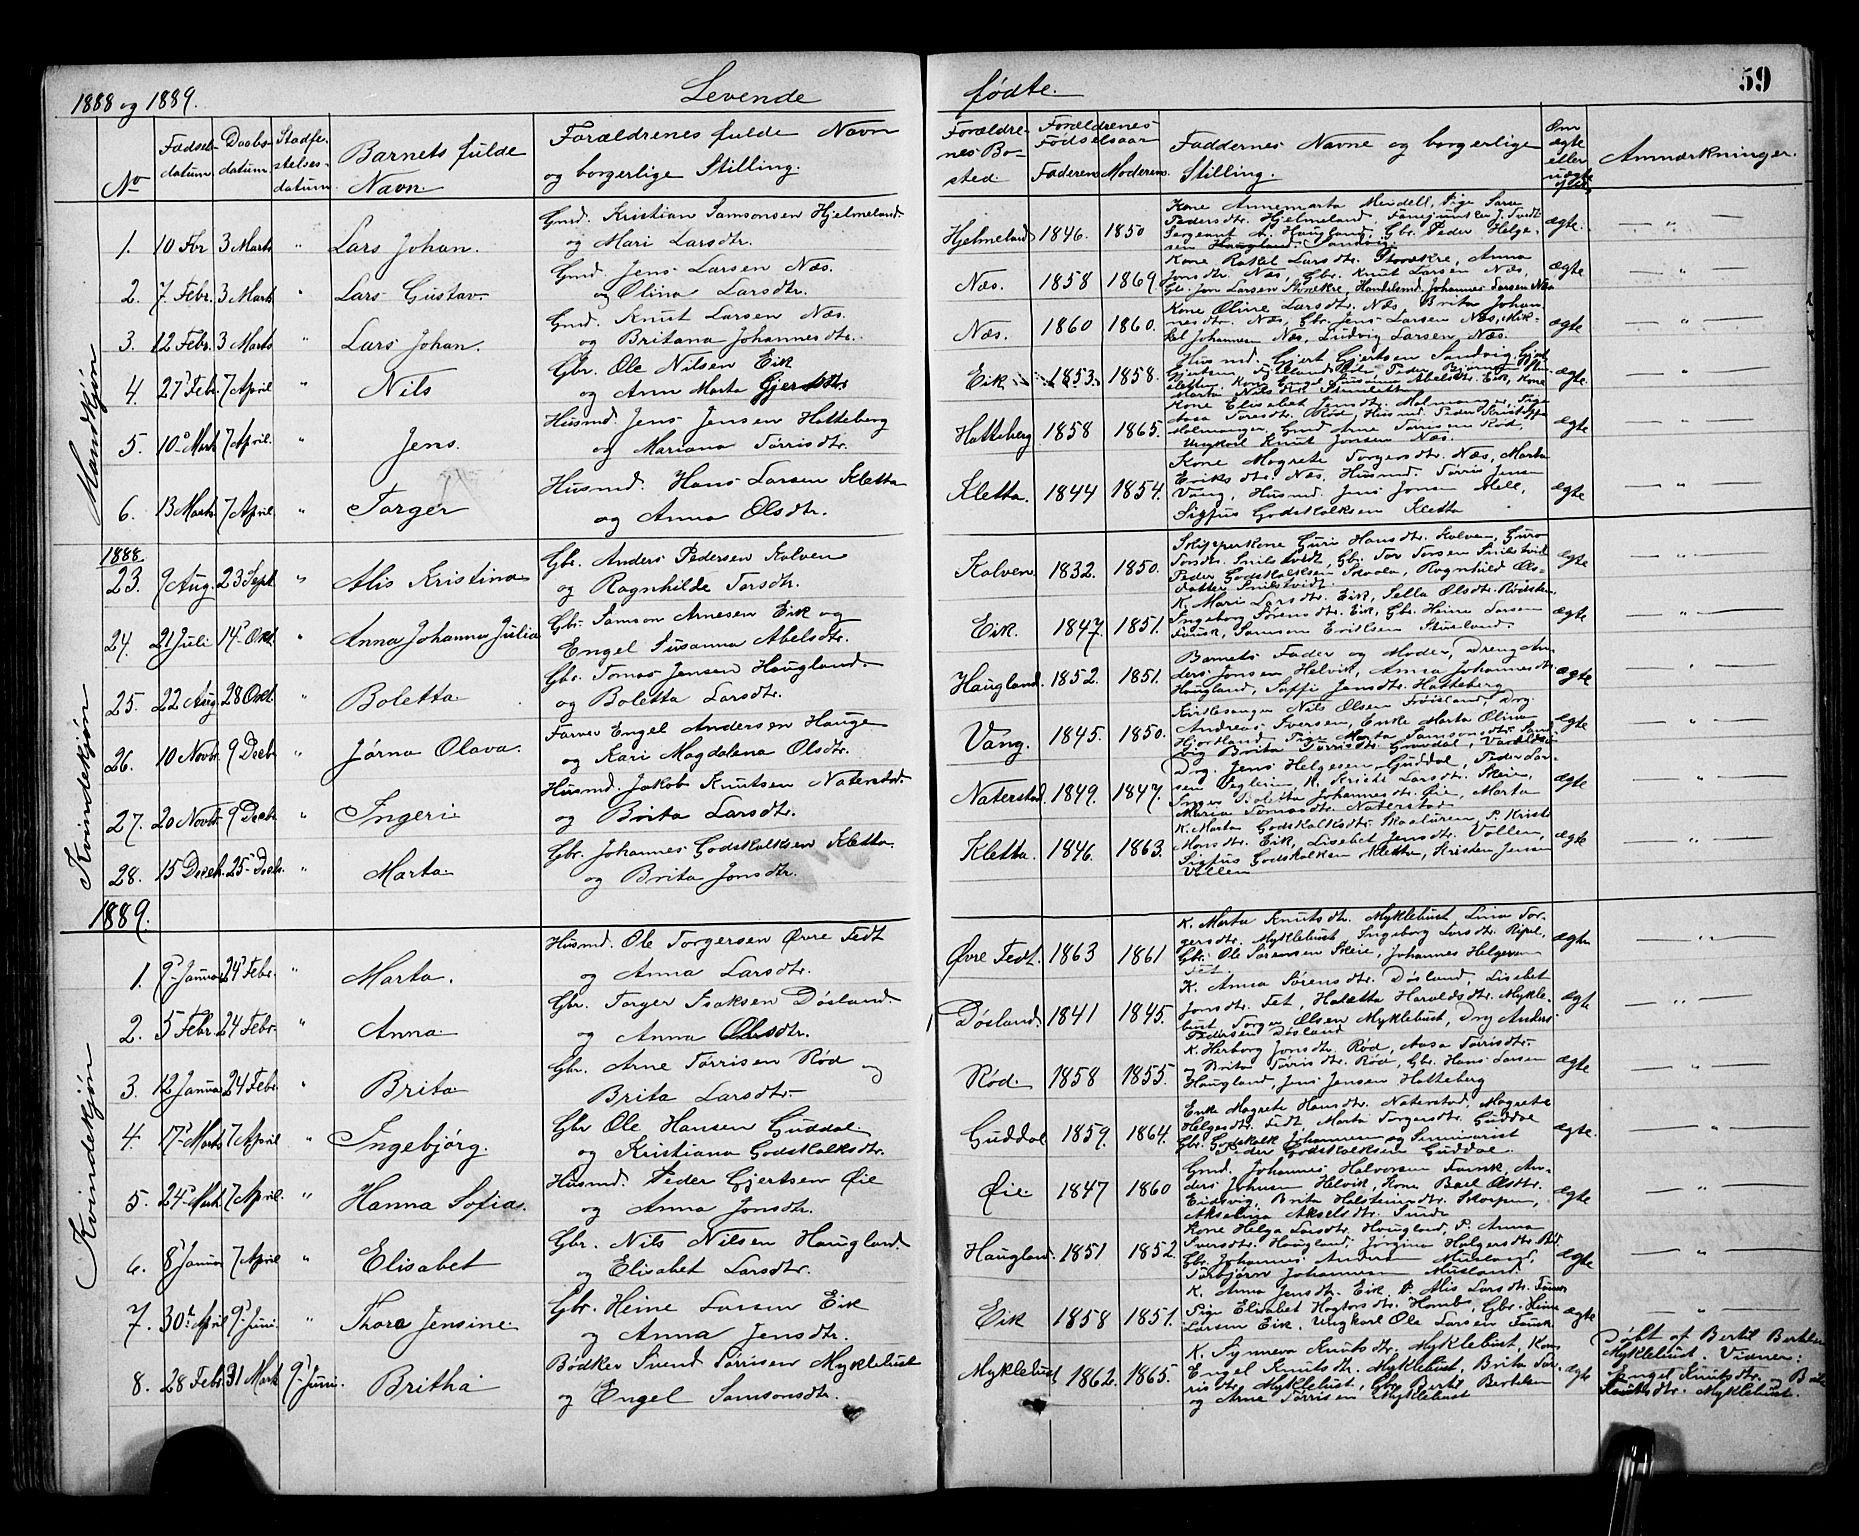 1888 og 1889.
Levende
fødte.
59
No
Fødsels-
datum.
Daabs-
datum.
Stadfæ-
stelses-
datum.
Barnets fulde
Navn.
Forældrenes fulde Navn
og borgerlige Stilling.
Forældre-
nes Bo-
sted.
Forældrenes
Fødselsaar
Faderens Moderens
Faddernes Navne og borgerlige
Stilling.
Om
ægte
eller
uægte
Anmærkninger.
Mandkjøn
1. 10 3 Marts " Lars Johan.
Gmd. Kristian Samsonsen Hjelmeland
og Mari Larsdtr.
Hjelmeland 1846. 1850 ægte. — " —
Kone Annemarta Mendell, Pige Sara
Pedersdtr. Hjelmeland,
Sergeant A. Haugland, Gbr. Peder Helge-
sen Sandvig.
2. 7. Febr. 3 Marts " Lars Gustav.
Gmd. Jens Larsen Næs.
og Olina Larsdtr.
Næs. 1858 1869. ægte — " —
Kone Rakel Larsdtr. Anna
Jonsdtr. Næs, Gbr. Knut Larsen Næs,
Gbr. Jon Larsen Handelsmd. Johannes Larsen Næs
3. 12 Febr. 3 Marts " Lars Johan.
Gmd. Knut Larsen Næs.
og Britana Johannesdtr.
Næs. 1860 1860. ægte — " —
Kone Oline Larsdtr. Næs, Brita Johan-
nesdtr. Næs, Gbr. Jens Larsen Næs, Mik-
kel Johannesen Næs, Ludvig Larsen Næs.
4. 27 Febr. 7 April " Nils
Gbr. Ole Nilsen Eik
og Ann Marta Gjertsdtr
Eik 1853. 1858. ægte. — " —
Husmd. Gjert Gjertsen Sandvig,
Gjertsen, Peder
Kone Engel Susanna Abelsdtr. Eik, Kone
Marta Nilsdtr.
5. 10 Mart 7 April. " Jens.
Husmd. Jens Jensen Hatteberg
og Mariana Tørrisdtr.
Hatteberg 1858 1865. ægte — " —
Kone Elisabet Jensdtr. Malmanger, Pige
Aasa Rød, Husmd. Peder
Malmanger, Gmd Arne Tørrisen Rød,
Ungkarl Knut Jonsen Næs.
6. 13 Marts 7 April " Torger
Husmd. Hans Larsen Kletta
og Anna Olsdtr.
Kletta. 1844 1854. ægte — " —
Kone Magrete Torgersdtr. Næs, Marta
Eriksdtr. Næs, Husmd. Tørris Jensen
Vang, Husmd. Jens Jonsen
Sigfus Godskalksen Kletta
Kvindekjøn
1888.
23. 9 Aug. 23 Sept. " Alis Kristina
Gbr. Anders Pedersen Kalven
og Ragnhilde Torsdtr.
Kalven 1832. 1850. ægte — " —
Skipperkone Guri Hansdtr. Kalven, Guro
Torsdtr. Gbr. Tor Torsen
Peder Godskalksen Ragnhild Ols-
datter
24. 21 Juli 14 Okt. " Anna Johanna Julia
Gbr. Samson Arnesen Eik og
Engel Susanna Abelsdtr.
Eik. 1847. 1851. ægte — " —
K. Mari Larsdtr. Eik, Sella Olsdtr.
Ingeborg Sørensdtr. Eik, Gbr. Heine Larsen
Samson
25. 22 Aug. 28 Okt. " Boletta
Gbr. Tomas Jensen Haugland.
og Boletta Larsdtr.
Haugland. 1852. 1851. ægte — " —
Barnets Fader og Moder, Dreng An-
ders Jonsen Helvik, Anna Johannesdtr
Haugland, Jensdtr. Hatteberg
26. 10 Novbr. 9 Decbr " Jørna Olava.
Farver Engel Andersen Hauge
og Kari Magdalena Olsdtr.
Vang. 1845. 1850. ægte — " —
Kirkesanger Nils Olsen
Andreas Iversen, Enke Marta Olina
Hjortland, Pige Marta Samsonsdtr. Sand-
vig Brita Tørrisdtr.
27. 20 Novbr. 9 Decbr. " Ingeri
Husmd. Jakob Knutsen Naterstad.
og Brita Larsdtr.
Naterstad. 1849. 1847. ægte — " —
Jens Helgesen Guddal, Peder Lar-
sen Larsdtr. Skeie,
Boletta Johannesdtr. Øie, Marta
Maria Tomasdtr. Naterstad
28. 15 Decbr. 25 Decbr. " Marta
Gbr. Johannes Godskalksen Kletta.
og Brita Jonsdtr.
Kletta. 1846. 1863. ægte — " —
K. Marta Godskalksdtr. P. Kristi
Hansdtr. Eik, Lisabet Jensdtr. Vollen,
Sigfus Godskalksen Kletta, Kristen Jensen
Vollen
1889.
Kvindekjøn
1. 9 Januar 24 Febr. " Marta.
Husmd. Ole Torgersen Øvre Tedt
og Anna Larsdtr.
Øvre Tedt. 1863 1861 ægte — " —
K. Marta Knutsdtr. Myklebust, Lina Tor-
gersdtr. Myklebust Ingeborg Larsdtr. Ripel,
Gbr. Ole Sørensen Skeie, Johannes Helgesen
2. 5 Febr. 24 Febr. " Anna
Gbr. Torger Isaksen Døsland.
og Anna Olsdtr.
Døsland 1841 1845. ægte — " —
K. Anna Sørensdtr. Døsland, Lisabet
Jonsdtr. Tet, Haletta Haraldsdtr. Mykle-
bust Torger Olsen Myklebust, Drg Anders
Pedersen Døsland
3. 12 Januar 24 Febr. " Brita
Gbr. Arne Tørrisen Rød og
Brita Larsdtr.
Rød. 1858 1855. ægte — " —
K. Herborg Jonsdtr. Rød, Aasa Tørrisdtr.
og Brita Tørrisdtr. Rød, Gbr. Hans Larsen
Haugland, Jens Jensen Hatteberg
4. 17 Marts 7 April " Ingebjørg.
Gbr Ole Hansen Guddal
og Kristiana Godskalksdtr.
Guddal 1859. 1864. ægte. — " —
Enke Magrete Hansdtr. Naterstad, Magrete
Helgesdtr. Tedt Marta Torgersdtr. Guddal
Gbr. Godskalk Johannesen og Seminarist
Peder Godskalksen Guddal.
5. 24 Mart. 7 April. " Hanna Sofia.
Husmd. Peder Gjertsen Øie
og Anna Jonsdtr.
Øie 1847 1860 ægte — " —
Gmd. Johannes Halvorsen An-
ders Johnsen Helvik, Kone Olsdtr.
Eidsvig, Brita Halsteinsdtr. Skorpen,
Akselina Akselsdtr. Sunde
6. 8 Januar 7 April " Elisabet
Gbr. Nils Nilsen Haugland.
og Elisabet Larsdtr.
Haugland. 1851 1852. ægte — " —
Kone Helga Larsdtr. Haugland, P. Anna
Haugland, Jørgina Holgersdtr.
Gbr. Johannes Anders
Torbjørn Johannesen
7. 30 April 9 Juni. " Thora Jensine.
Gbr. Heine Larsen Eik
og Anna Jensdtr.
Eik 1858 1851. ægte — " —
K. Anna Jensdtr. Eik, P. Alis Larsdtr.
Pige Elisabet Gbr. Heine
Larsen Eik, Ungkarl Ole Larsen
8. 28 Febr. 31 Mart 9 Juni. Britha
Bødker Svend Tørrisen Myklebust
og Engel Samsonsdtr.
Myklebust 1862. 1865. ægte
K. Synneva Knutsdtr. Myklebust, Kone
Engel Knutsdtr. Myklebust, Brita Tør-
risdtr. Myklebust, Gbr. Bertil Bertilsen
og Arne Tørrisen Myklebust
Døbt af Bertil Bertilsen
Myklebust. Vidner:
Engel Knutsdtr. og
Knutsdtr. Myklebust.